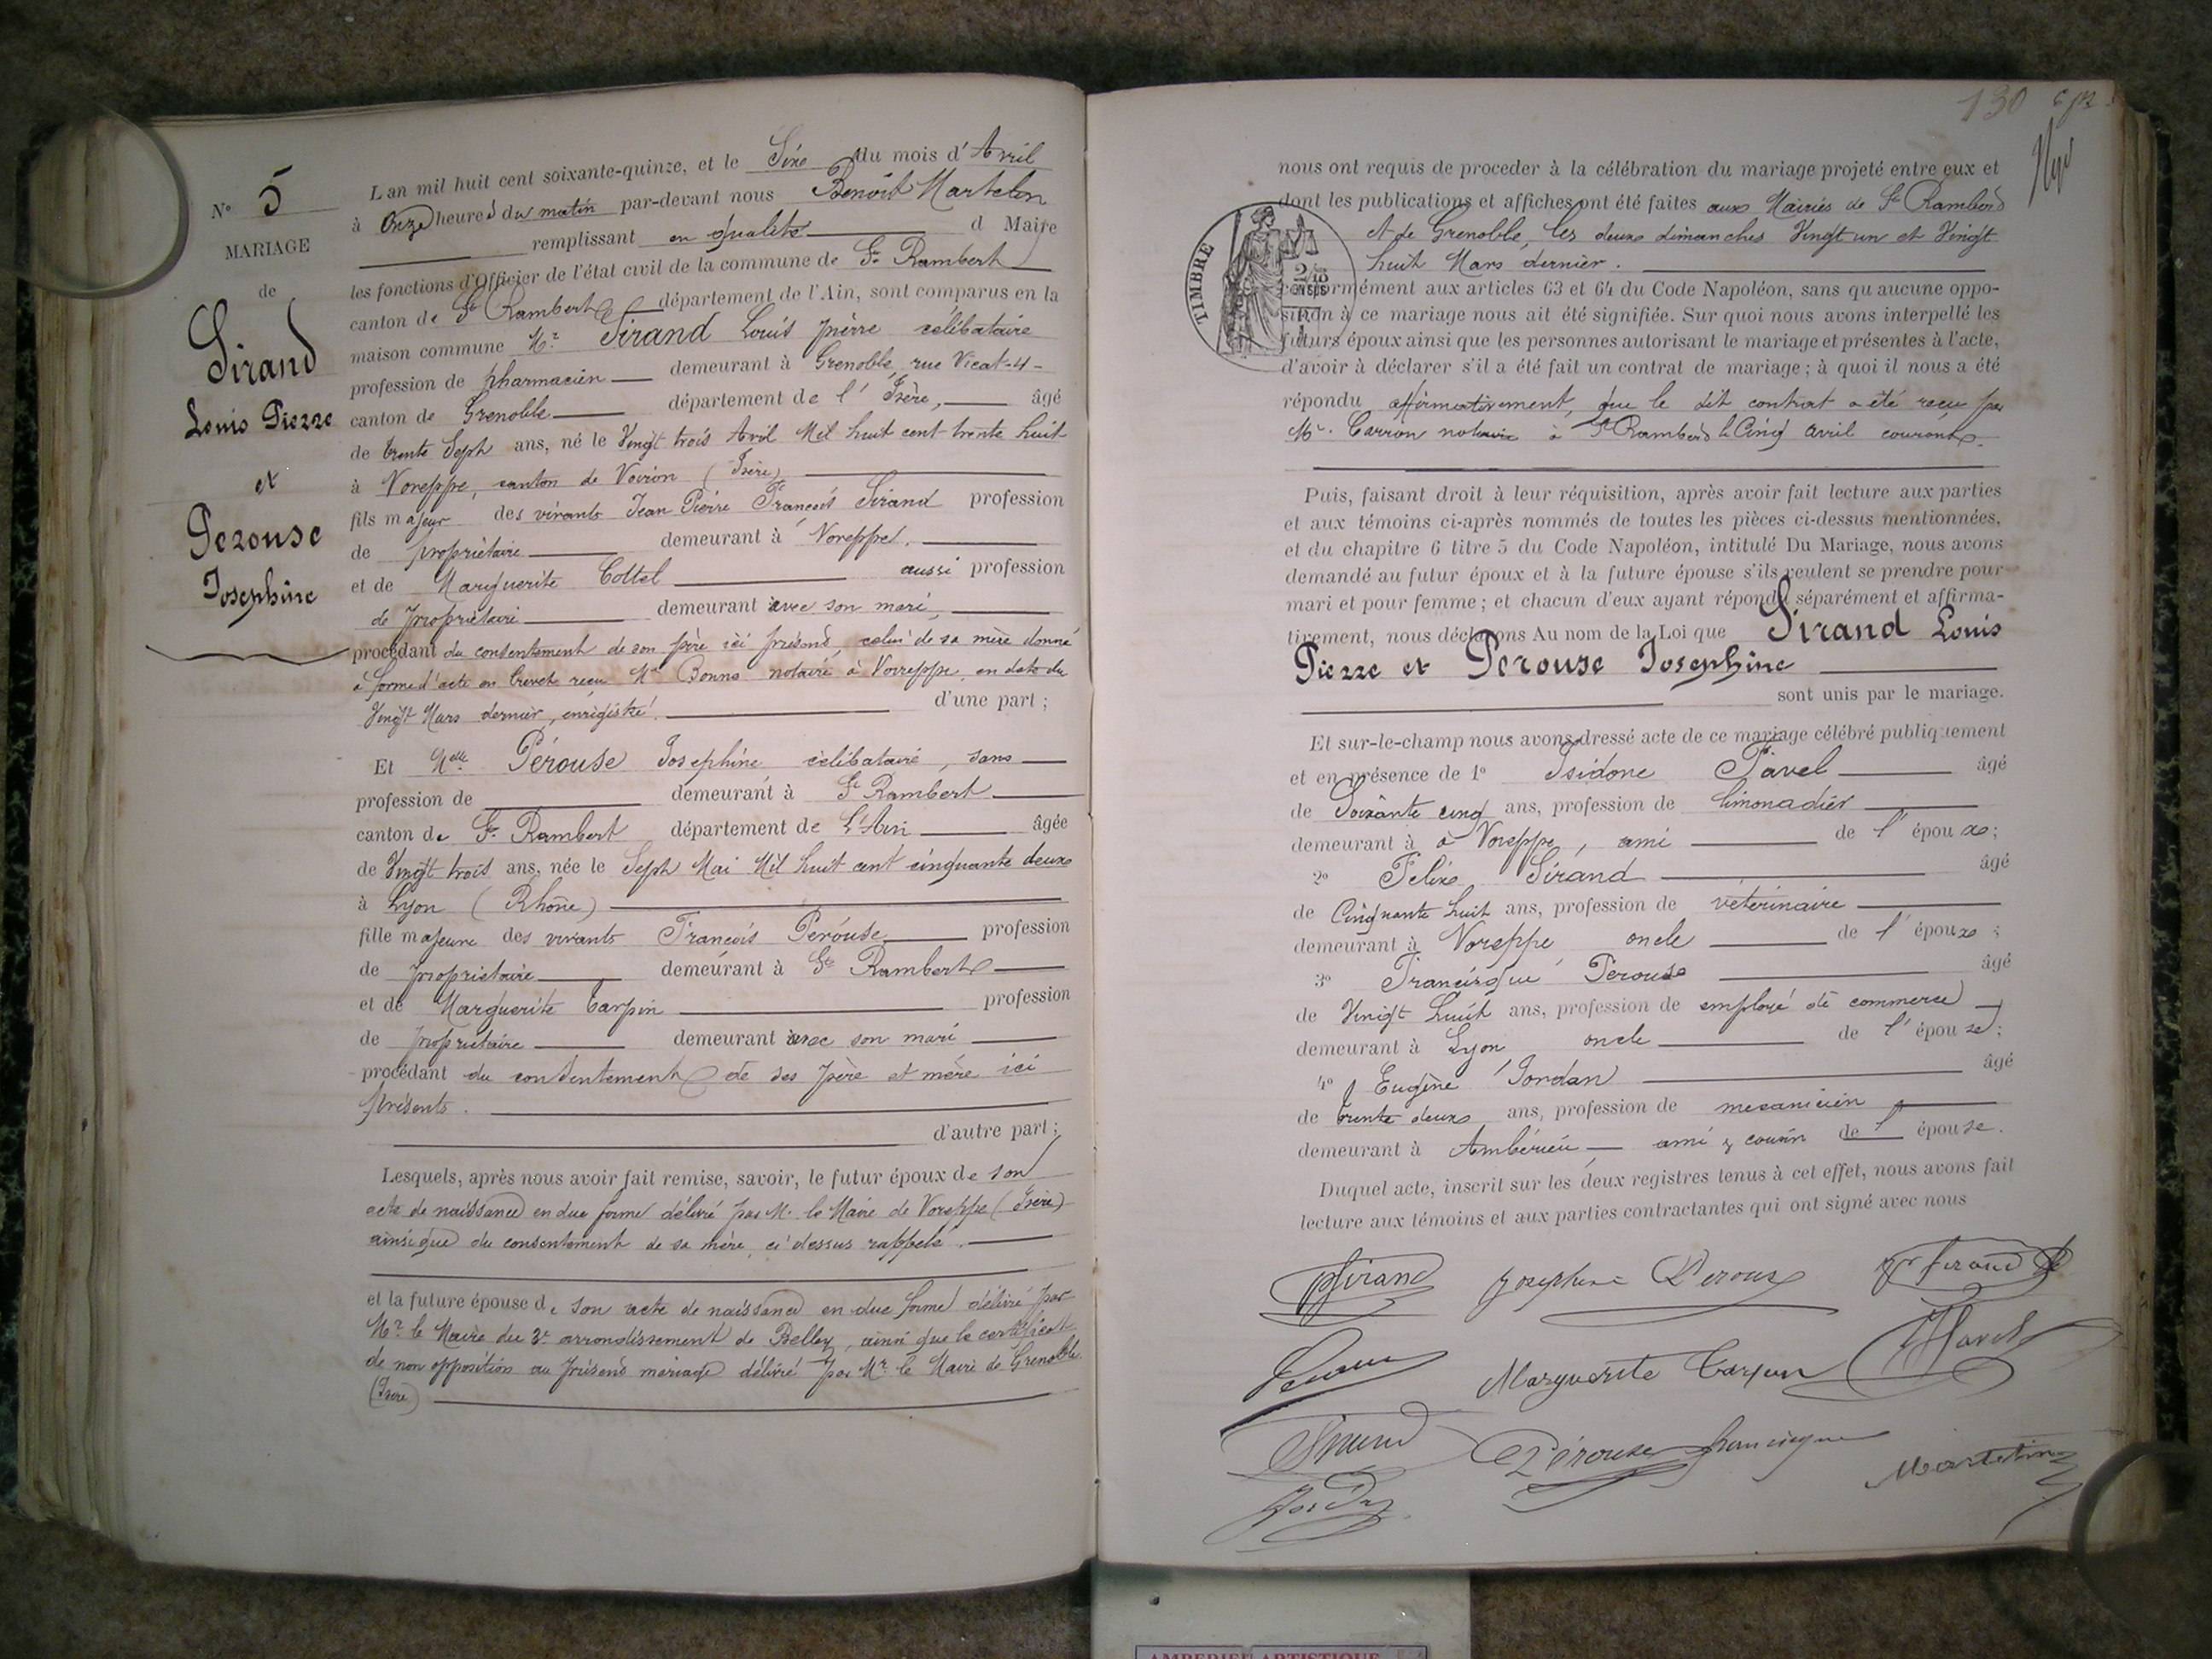 N° 5
MARIAGE
de
Sirand
Louis Pierre
et
Perouse
Josephine
L'an mil huit cent soixante-quinze, et le Six du mois d'Avril
à Onze heures du matin par-devant nous Benoît Martelin
remplissant en qualité d Maire
les fonctions d'Officier de l'état civil de la commune de St Rambert
canton de St Rambert département de l'Ain, sont comparus en la
maison commune Mr Sirand Louis pierre célibataire
profession de pharmacien demeurant à Grenoble, rue Vicat-4-
canton de Grenoble département de l'Isère, âgé
de trente Sept ans, né le Vingt trois Avril Mil huit cent trente huit
à Voreppe, canton de Voiron (Isère)
fils majeur des vivants Jean Pierre François Sirand profession
de propriètaire demeurant à Voreppe,
et de Marguerite Cottel aussi profession
de Propriètaire demeurant avec son mari,
procédant du consentement de son père ici présent, celui de sa mère donné
à forme d'acte en brevet reçu Me Bonne notaire à Voreppe, en date du
Vingt Mars dernier, enrègistré. d'une part;
Et Melle Pérouse Josephine célibataire, sans
profession de demeurant à St Rambert
canton de St Rambert département de L'Ain âgée
de Vingt trois ans, née le Sept Mai Mil huit cent cinquante deux
à Lyon (Rhône)
fille majeure des vivants François Pérouse profession
de propriètaire demeurant à St Rambert
et de Marguerite Carpin profession
de propriètaire demeurant avec son mari
procédant du consentement de ses père et mère ici
présents.
d'autre part;
Lesquels, après nous avoir fait remise, savoir, le futur époux de son
acte de naissance en due forme délivré par M. le Maire de Voreppe (Isère)
ainsi que du consentement de sa mère, ci dessus rappelé.
et la future épouse de son acte de naissance en due forme délivré par
Mr le Maire du 3e arrondissement de Belley, ainsi que le certificat
de non opposition au présent mariage délivré par Mr le Maire de Grenoble
(Isère)
130
nous ont requis de proceder à la célébration du mariage projeté entre eux et
dont les publications et affiches ont été faites aux Mairies de St Rambert
et de Grenoble, les deux dimanches Vingt un et Vingt
huit Mars dernier.
TIMBRE
conformément aux articles 63 et 64 du Code Napoléon, sans qu'aucune oppo-
sition à ce mariage nous ait été signifiée. Sur quoi nous avons interpellé les
futurs époux ainsi que les personnes autorisant le mariage et présentes à l'acte,
d'avoir à déclarer s'il a été fait un contrat de mariage; à quoi il nous a été
répondu affirmativement, que le dit contrat a été reçu par
Me. Carron notaire à St Rambert le Cinq avril courant.
Puis, faisant droit à leur réquisition, après avoir fait lecture aux parties
et aux témoins ci-après nommés de toutes les pièces ci-dessus mentionnées,
et du chapitre 6 titre 5 du Code Napoléon, intitulé Du Mariage, nous avons
demandé au futur époux et à la future épouse s'ils veulent se prendre pour
mari et pour femme; et chacun d'eux ayant répondu séparément et affirma-
tivement, nous déclarons Au nom de la Loi que Sirand Louis
Pierre et Perouse Josephine
sont unis par le mariage.
Et sur-le-champ nous avons dressé acte de ce mariage célébré publiquement
et en présence de 1° Isidore Favel âgé
de Soixante cinq ans, profession de limonadier
demeurant à à Voreppe, ami de l'époux;
2° Félix Sirand âgé
de Cinquante huit ans, profession de véterinaire
demeurant à Voreppe oncle de l'époux;
3° Francisque Perouse âgé
de Vingt huit ans, profession de employé de commerce
demeurant à Lyon oncle de l'épouse;
4° Eugène Jordan âgé
de trente deux ans, profession de mecanicien
demeurant à Ambérieu ami & cousin de l'épouse.
Duquel acte, inscrit sur les deux registres tenus à cet effet, nous avons fait
lecture aux témoins et aux parties contractantes qui ont signé avec nous
Sirand Josephine Perouse Sirand
Perouse Marguerite Carpin Favel
Sirand Pérouse francisque Martelin
AMBERIEU ARTISTIQUE